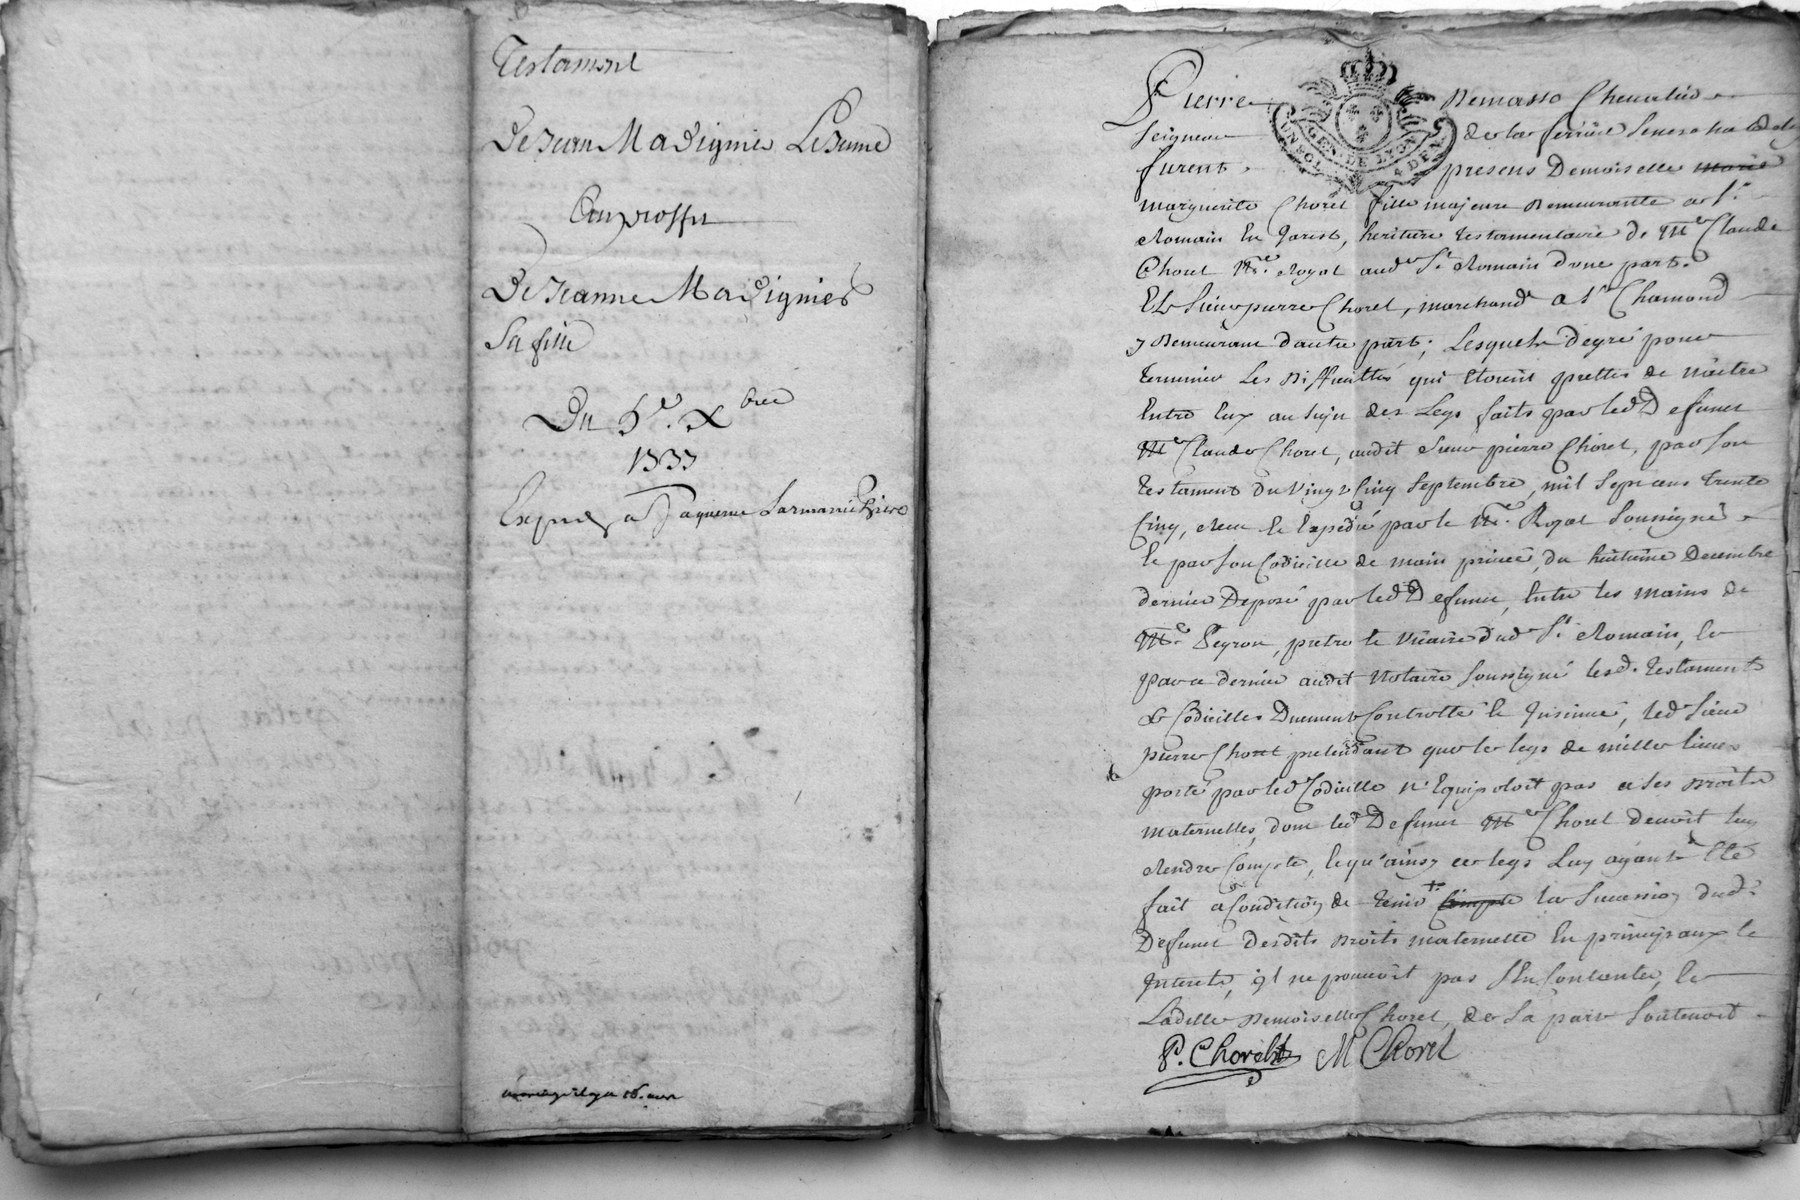 Testament
De Jean Madignier Le Jeune
Au proffit
De Jeanne Madignier
Sa fille
Du 6e. Xbre
1733
Exped
Pierre Demasso Chevalier
Seigneur de la ferriere Senechal de Lyon
furent presens Demoiselle marie
marguerite Chorel fille majeure Demeurante a St.
Romain En Jarest, heritiere testamentaire de Me Claude
Chorel Nre. Royal aud St. Romain d'une part.
Et Sieur pierre Chorel, marchand a St Chamond
y Demeurant d'autre part; Lesquels de gré pour
terminer Les Difficultés qui Etoient prettes de naitre
Entre Eux au sujet des Legs faits par led Defunct
Me Claude Chorel, audit Sieur pierre Chorel, par son
testament du Vingt Cinq Septembre, mil Sept cens trente
Cinq, receu et Expedié par le Nre. Royal Soussigné
et par son Codicille de main privée, du huitieme Decembre
dernier Deposé par led Defunct, Entre les mains de
Me. Peyron, pretre et Vicaire dud St. Romain, et
par ce dernier audit Notaire Soussigné lesd. testament
et Codicilles Duement Controllé et Insinué, led Sieur
pierre Chorel pretendant que le legs de mille livres
porté par led Codicille n'Equipoloit pas a ses Droits
maternelles, dont led Defunct Me Chorel devoit luy
Rendre Compte, et qu'ainsy ce legs Luy ayant Eté
fait a Condition de tenir Compte la Succession dud.
Defunct desdits Droits maternelle En principaux et
Interets, il ne pouvoit pas s'En Contenter, et
Laditte Demoiselle Chorel, de Sa part Soutenoit
P. Chorel M Chorel